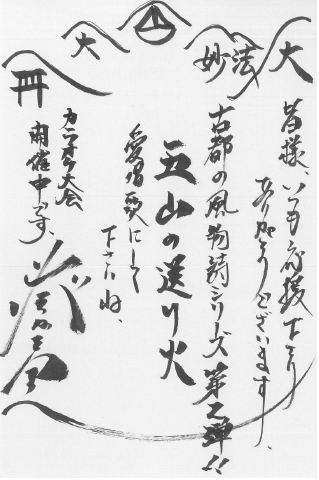 大
妙法
大
皆様、いつも応援下さり
ありがとうございます。
古都の風物詩シリーズ第二弾!!
五山の送り火
愛唱歌にして
下さいね、
カラオケ大会
開催中です、